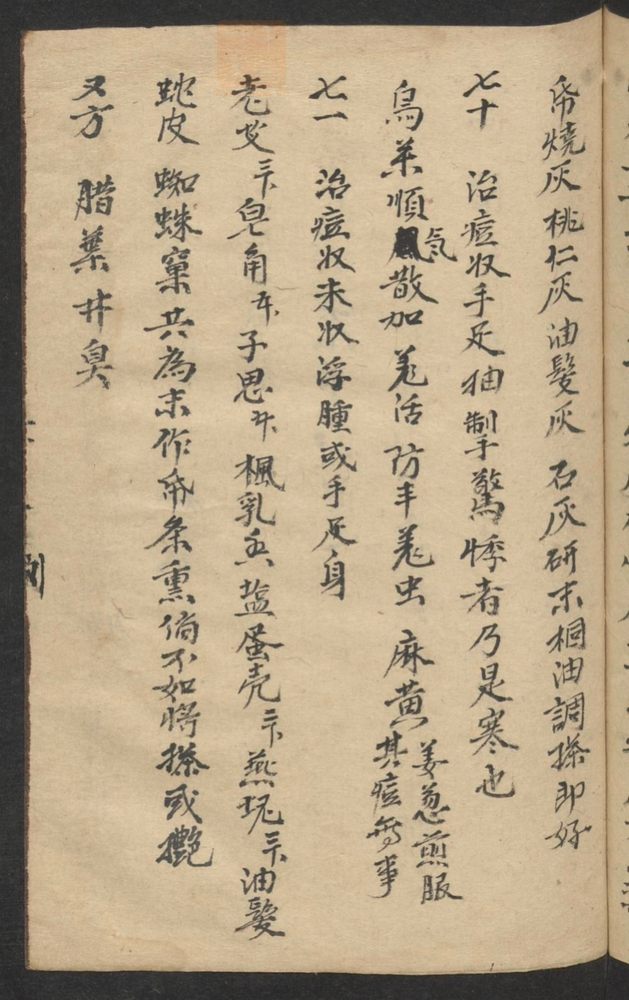 帋燒灰桃仁灰油髮灰 石灰研末桐油調搽即好
七十 治痘收手足抽掣驚悸者乃是寒也
烏藥順氣散加羌活防丰羌虫 麻黄 姜葱煎服 其痘無事
七一 治痘收未收浮腫或手足身
老艾三卞皂角 子思 楓乳香 盐蛋壳三卞燕坭三卞油髮
蛇皮 蜘蛛窠共為末作帋条熏倘不如將搽或
又方 腊葉井臭